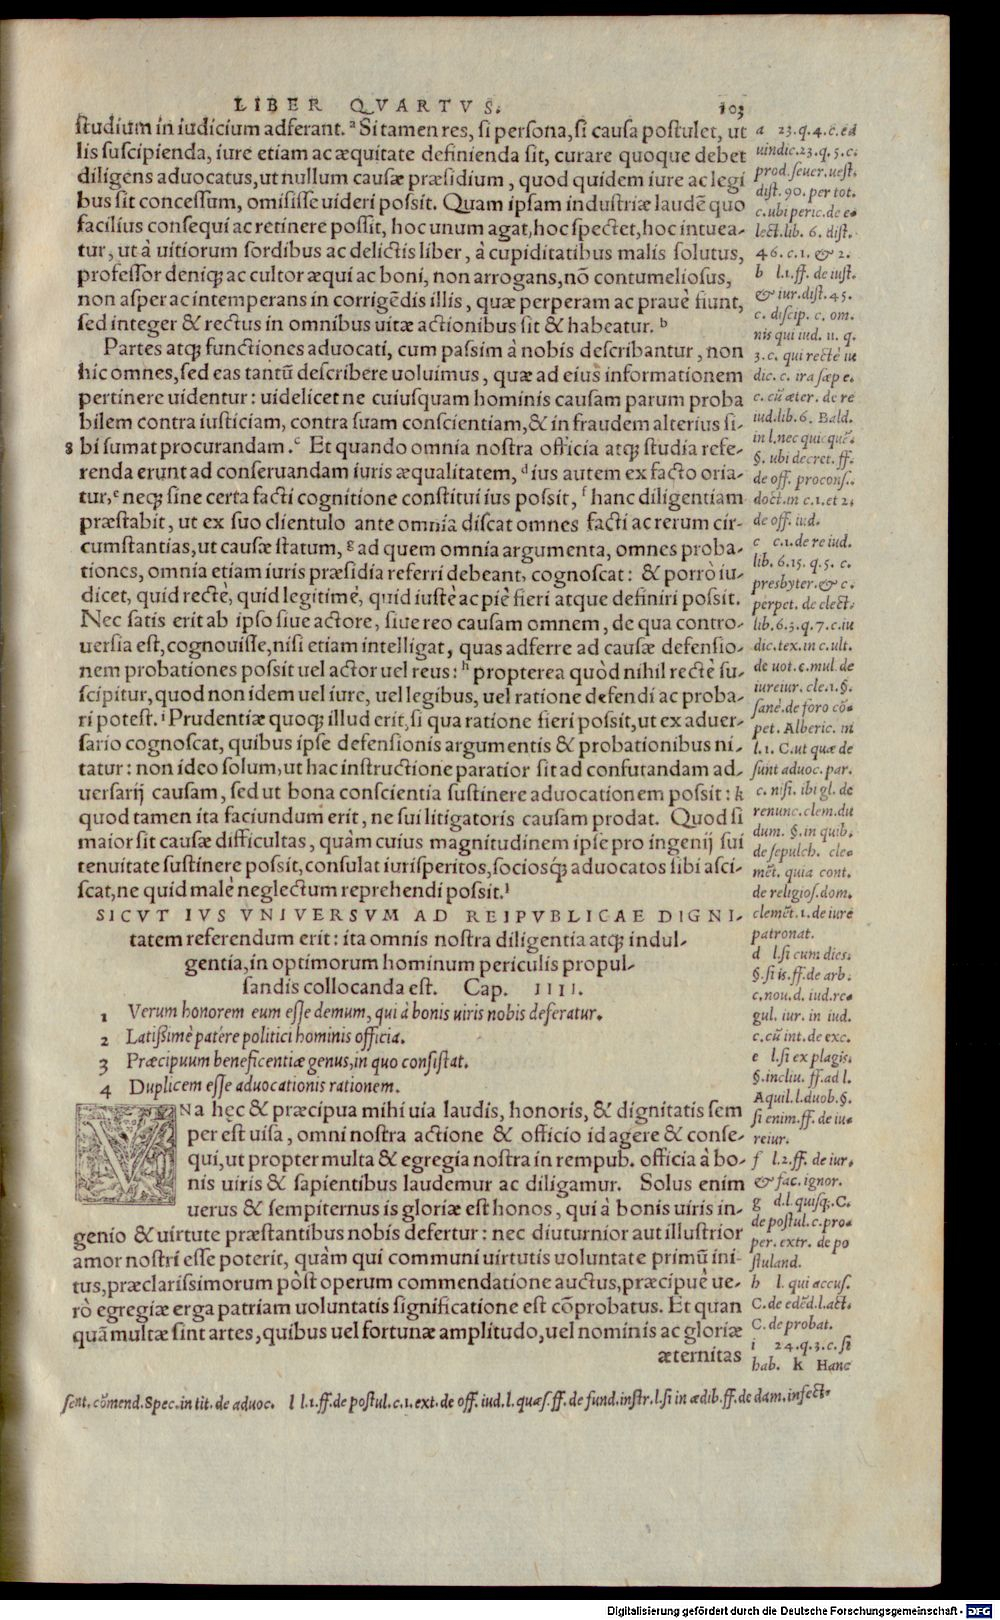 LIBER QVARTVS. 103
studium in iudicium adferant.ᵃ Si tamen res, si persona, si causa postulet, ut
lis suscipienda, iure etiam ac æquitate definienda sit, curare quoque debet
diligens aduocatus, ut nullum causæ præsidium, quod quidem iure ac legi
bus sit concessum, omisisse uideri possit. Quam ipsam industriæ laudē quo
facilius consequi ac retinere possit, hoc unum agat, hoc spectet, hoc intuea-
tur, ut à uitiorum sordibus ac delictis liber, à cupiditatibus malis solutus,
professor deniq; ac cultor æqui ac boni, non arrogans, nō contumeliosus,
non asper ac intemperans in corrigēdis illis, quæ perperam ac prauè fiunt,
sed integer & rectus in omnibus uitæ actionibus sit & habeatur.ᵇ
Partes atq; functiones aduocati, cum passim à nobis describantur, non
hic omnes, sed eas tantū describere uoluimus, quæ ad eius informationem
pertinere uidentur: uidelicet ne cuiusquam hominis causam parum proba
bilem contra iusticiam, contra suam conscientiam, & in fraudem alterius si-
8 bi sumat procurandam.ᶜ Et quando omnia nostra officia atq; studia refe-
renda erunt ad conseruandam iuris æqualitatem,ᵈ ius autem ex facto oria-
tur,ᵉ neq; sine certa facti cognitione constitui ius possit,ᶠ hanc diligentiam
præstabit, ut ex suo clientulo ante omnia discat omnes facti ac rerum cir-
cumstantias, ut causæ statum,ᵍ ad quem omnia argumenta, omnes proba-
tiones, omnia etiam iuris præsidia referri debeant, cognoscat: & porrò iu-
dicet, quid rectè, quid legitimè, quid iustè ac piè fieri atque definiri possit.
Nec satis erit ab ipso siue actore, siue reo causam omnem, de qua contro-
uersia est, cognouisse, nisi etiam intelligat, quas adferre ad causæ defensio-
nem probationes possit uel actor uel reus:ʰ propterea quòd nihil rectè su-
scipitur, quod non idem uel iure, uel legibus, uel ratione defendi ac proba-
ri potest.ⁱ Prudentiæ quoq; illud erit, si qua ratione fieri possit, ut ex aduer-
sario cognoscat, quibus ipse defensionis argumentis & probationibus ni-
tatur: non ideo solum, ut hac instructione paratior sit ad confutandam ad-
uersarij causam, sed ut bona conscientia sustinere aduocationem possit: k
quod tamen ita faciundum erit, ne sui litigatoris causam prodat. Quod si
maior sit causæ difficultas, quàm cuius magnitudinem ipse pro ingenij sui
tenuitate sustinere possit, consulat iurisperitos, sociosq; aduocatos sibi asci-
scat, ne quid malè neglectum reprehendi possit.ˡ
SICVT IVS VNIVERSVM AD REIPVBLICAE DIGNI-
tatem referendum erit: ita omnis nostra diligentia atq; indul-
gentia, in optimorum hominum periculis propul-
sandis collocanda est. Cap. IIII.
1 Verum honorem eum esse demum, qui à bonis uiris nobis deferatur.
2 Latissimè patére politici hominis officia.
3 Præcipuum beneficentiæ genus, in quo consistat.
4 Duplicem esse aduocationis rationem.
VNa hęc & præcipua mihi uia laudis, honoris, & dignitatis sem
per est uisa, omni nostra actione & officio id agere & conse-
qui, ut propter multa & egregia nostra in rempub. officia à bo-
nis uiris & sapientibus laudemur ac diligamur. Solus enim
uerus & sempiternus is gloriæ est honos, qui à bonis uiris in-
genio & uirtute præstantibus nobis defertur: nec diuturnior aut illustrior
amor nostri esse poterit, quàm qui communi uirtutis uoluntate primū ini-
tus, præclarissimorum pòst operum commendatione auctus, præcipuè ue-
rò egregiæ erga patriam uoluntatis significatione est cōprobatus. Et quan
quā multæ sint artes, quibus uel fortunæ amplitudo, uel nominis ac gloriæ
æternitas
a 23. q. 4. c. ed
uindic. 23. q. 5. c.
prod. seuer. uest.
dist. 90. per tot.
c. ubi peric. de e-
lect. lib. 6. dist.
46. c. 1. & 2.
b l. 1. ff. de iust.
& iur. dist. 45.
c. discip. c. om.
nis qui iud. 11. q.
3. c. qui rectè iu
dic. c. ira sæp e.
c. cū æter. de re
iud. lib. 6. Bald.
in l. nec quicquē.
§. ubi decret. ff.
de off. procons.
doct. in c. 1. et 2.
de off. iud.
c c. 1. de re iud.
lib. 6. 15. q. 5. c.
presbyter. & c.
perpet. de elect.
lib. 6. 3. q. 7. c. iu
dic. tex. in c. ult.
de uot. c. mul. de
iureiur. cle. 1. §.
sanè. de foro cō-
pet. Alberic. in
l. 1. C. ut quæ de
sunt aduoc. par.
c. nisi. ibi gl. de
renunc. clem. du
dum. §. in quib.
de sepulch. cle-
mēt. quia cont.
de religios. dom.
clemēt. 1. de iure
patronat.
d l. si cum dies.
§. si is. ff. de arb.
c. nou. d. iud. re-
gul. iur. in iud.
c. cū int. de exc.
e l. si ex plagis.
§. incliu. ff. ad l.
Aquil. l. duob. §.
si enim. ff. de iu-
reiur.
f l. 2. ff. de iur.
& fac. ignor.
g d. l. quisq;. C.
de postul. c. pro-
per. extr. de po
stuland.
h l. qui accus.
C. de edēd. l. act.
C. de probat.
i 24. q. 3. c. si
hab. k Hanc
sent. cōmend. Spec. in tit. de aduoc. l l. 1. ff. de postul. c. 1. ext. de off. iud. l. quæs. ff. de fund. instr. l. si in ædib. ff. de dam. infect.
Digitalisierung gefördert durch die Deutsche Forschungsgemeinschaft - DFG